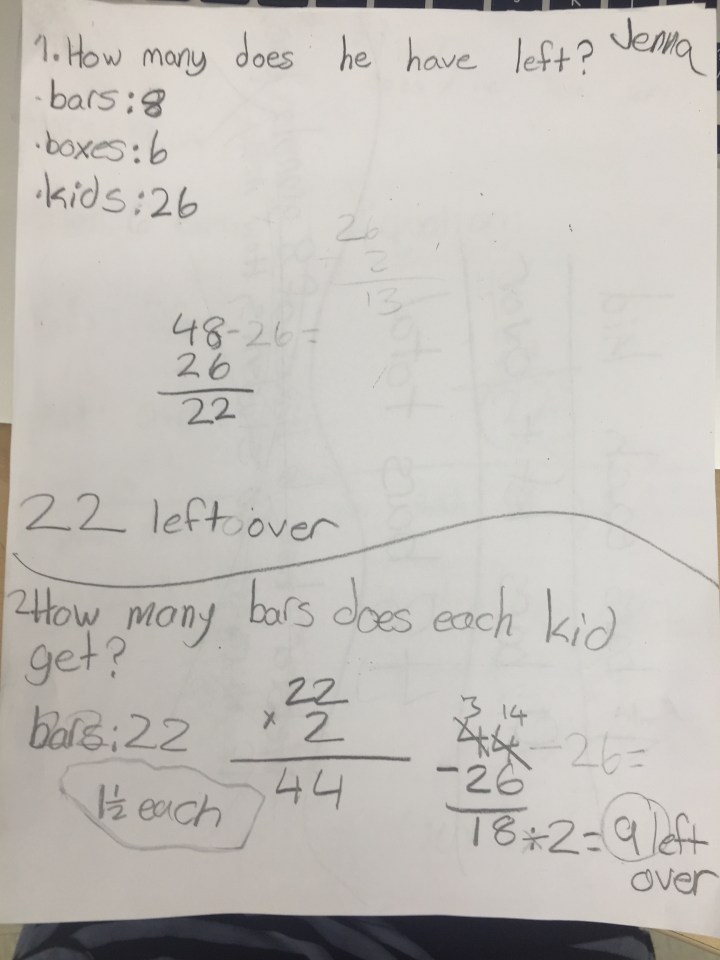 1. How many does he have left? Jenna
· bars: 8
· boxes: 6
· kids: 26
26
2
13
48-26=
26
22
22 left over
2 How many bars does each kid
get?
bars: 22
1½ each
22
× 2
44
3 14
44 - 26=
-26
18÷2= 9 left
over